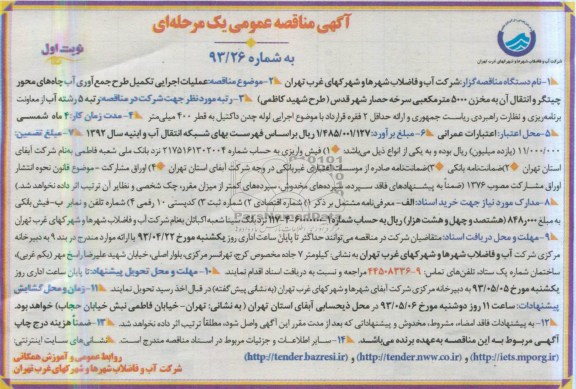 آگهی مناقصه عمومی یک مرحله‌ای
به شماره ۹۳/۲۶
نوبت اول
شرکت آب و فاضلاب شهرها و شهرکهای غرب تهران
۱-نام دستگاه مناقصه‌گزار: شرکت آب و فاضلاب شهرها و شهرکهای غرب تهران ۲-موضوع مناقصه: عملیات اجرایی تکمیل طرح جمع‌آوری آب چاه‌های محور
چیتگر و انتقال آن به مخزن ۵۰۰۰ مترمکعبی سرخه حصار شهر قدس (طرح شهید کاظمی) ۳-رتبه مورد نظر جهت شرکت در مناقصه: رتبه ۵ رشته آب از معاونت
برنامه‌ریزی و نظارت راهبردی ریاست جمهوری و ارائه حداقل ۲ فقره قرارداد با موضوع اجرایی لوله چدن داکتیل به قطر ۴۰۰ میلی‌متر ۴-مدت زمان کار: ۴ ماه شمسی
۵-محل اعتبار: اعتبارات عمرانی ۶-مبلغ برآورد: ۱/۴۸۵/۰۰۱/۱۲۷ ریال براساس فهرست بهای شبکه انتقال آب و ابنیه سال ۱۳۹۲ ۷-مبلغ تضمین:
۱۱/۰۰۰/۰۰۰ (یازده میلیون) ریال بوده و به یکی از انواع ذیل می‌باشد: ۱) فیش واریزی به حساب شماره ۲۱۷۵۱۶۱۳۰۲۰۰۴ نزد بانک ملی شعبه فاطمی بنام شرکت آبفای
استان تهران ۲)ضمانت‌نامه بانکی ۳)ضمانت‌نامه صادره از موسسات اعتباری غیربانکی در وجه شرکت آبفای استان تهران ۴) اوراق مشارکت - موضوع قانون نحوه انتشار
اوراق مشارکت مصوب ۱۳۷۶ (ضمناً به پیشنهادهای فاقد سپرده، سپرده‌های مخدوش، سپرده‌های کمتر از میزان مقرر، چک شخصی و نظایر آن ترتیب اثر داده نخواهد شد.)
۸-مدارک مورد نیاز جهت خرید اسناد: الف-معرفی‌نامه مشتمل بر ذکر ۱) شماره اقتصادی ۲) شماره ثبت ۳) کدپستی ۱۰ رقمی ۴) شماره تلفن و نمابر ب-فیش بانکی
به مبلغ ۸۴۸٫۰۰۰ (هشتصد و چهل و هشت هزار) ریال به حساب شماره نزد بانک شعبه اکباتان بنام شرکت آب و فاضلاب شهرها و شهرکهای غرب تهران
۹-مهلت و محل دریافت اسناد: متقاضیان شرکت در مناقصه می‌توانند حداکثر تا پایان ساعت اداری روز یکشنبه مورخ ۹۳/۰۴/۲۲ با ارائه موارد مندرج در بند ۹ به دبیرخانه
مرکزی شرکت آب و فاضلاب شهرها و شهرکهای غرب تهران به نشانی: کیلومتر ۷ جاده مخصوص کرج، تهرانسر مرکزی، بلوار اصلی، خیابان شهید علیرضا راسخ مهر (یکم غربی)،
ساختمان شماره یک ستاد، تلفن‌های تماس: ۹-۴۴۵۰۸۳۳۶ مراجعه و نسبت به دریافت اسناد اقدام نمایند ۱۰-مهلت و محل تحویل پیشنهادات: تا پایان ساعت اداری روز
یکشنبه مورخ ۹۳/۰۵/۰۵ به دبیرخانه مرکزی شرکت آبفای شهرها و شهرکهای غرب تهران (به نشانی پیش‌گفته) در قبال اخذ رسید تحویل نمایند ۱۱-زمان و محل گشایش
پیشنهادات: ساعت ۱۱ روز دوشنبه مورخ ۹۳/۰۵/۰۶ در محل ذیحسابی آبفای استان تهران (به نشانی: تهران- خیابان فاطمی نبش خیابان حجاب) خواهد بود.
۱۲-به پیشنهادات فاقد امضاء، مشروط، مخدوش و پیشنهاداتی که بعد از مدت مقرر این آگهی واصل شود، مطلقاً ترتیب اثر داده نخواهد شد. ۱۳-ضمناً هزینه درج چاپ
آگهی مربوط به این مناقصه به عهده برنده می‌باشد ۱۴-سایر اطلاعات و جزئیات مربوط در اسناد مناقصه مندرج است. نشانی‌های سایت اینترنتی:
(http://iets.mporg.ir) و (http://tender.nww.co.ir) و (http://tender.bazresi.ir)
روابط عمومی و آموزش همگانی
شرکت آب و فاضلاب شهرها و شهرکهای غرب تهران